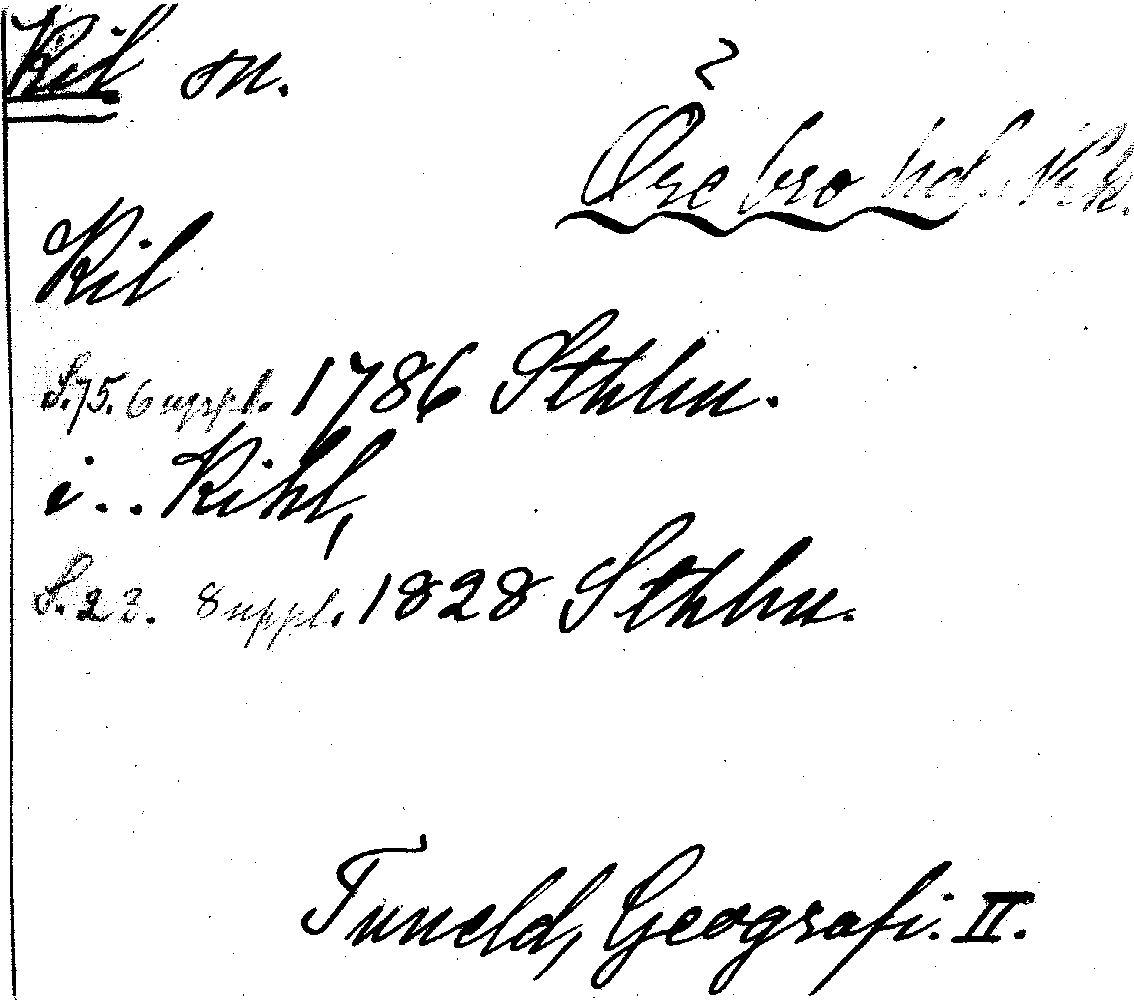 Kil sn.
Örebro hd. Kk.
Kil
S. 75. 6 uppl. 1786 Sthlm.
i.. Kihl,
S. 23. 8 uppl. 1828 Sthlm.
Tuneld, Geografi. II.